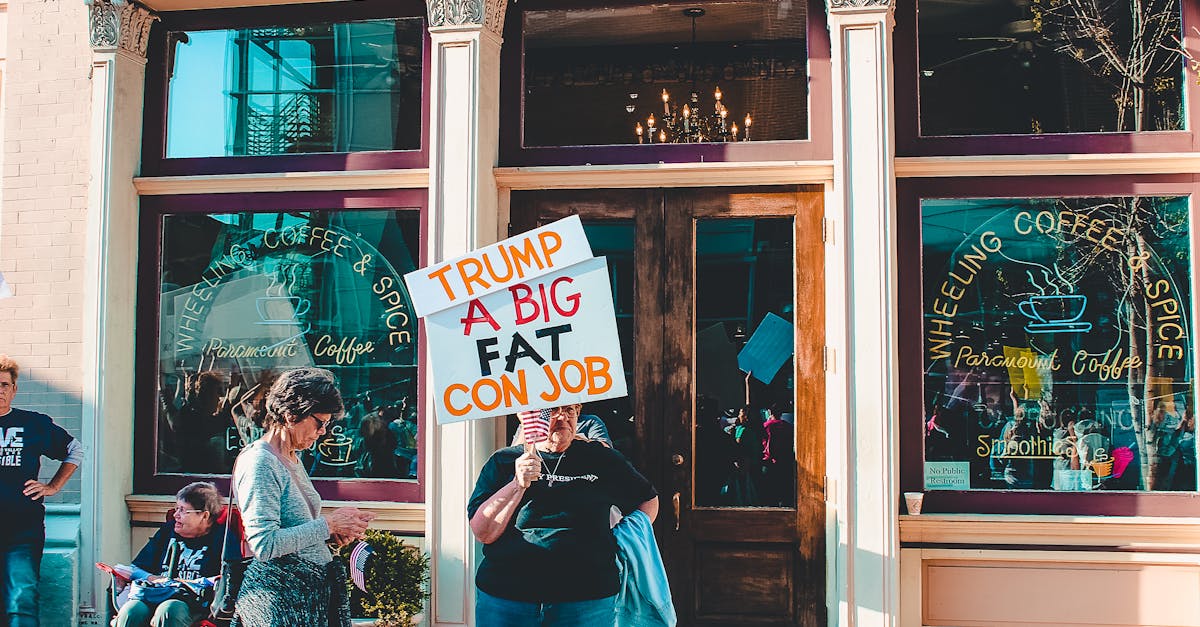 WHEELING COFFEE & SPICE
Paramount Coffee
TRUMP
A BIG
FAT
CON JOB
PRESIDENT
WHEELING COFFEE & SPICE
Paramount Coffee
Smoothies
No Public
Restroom